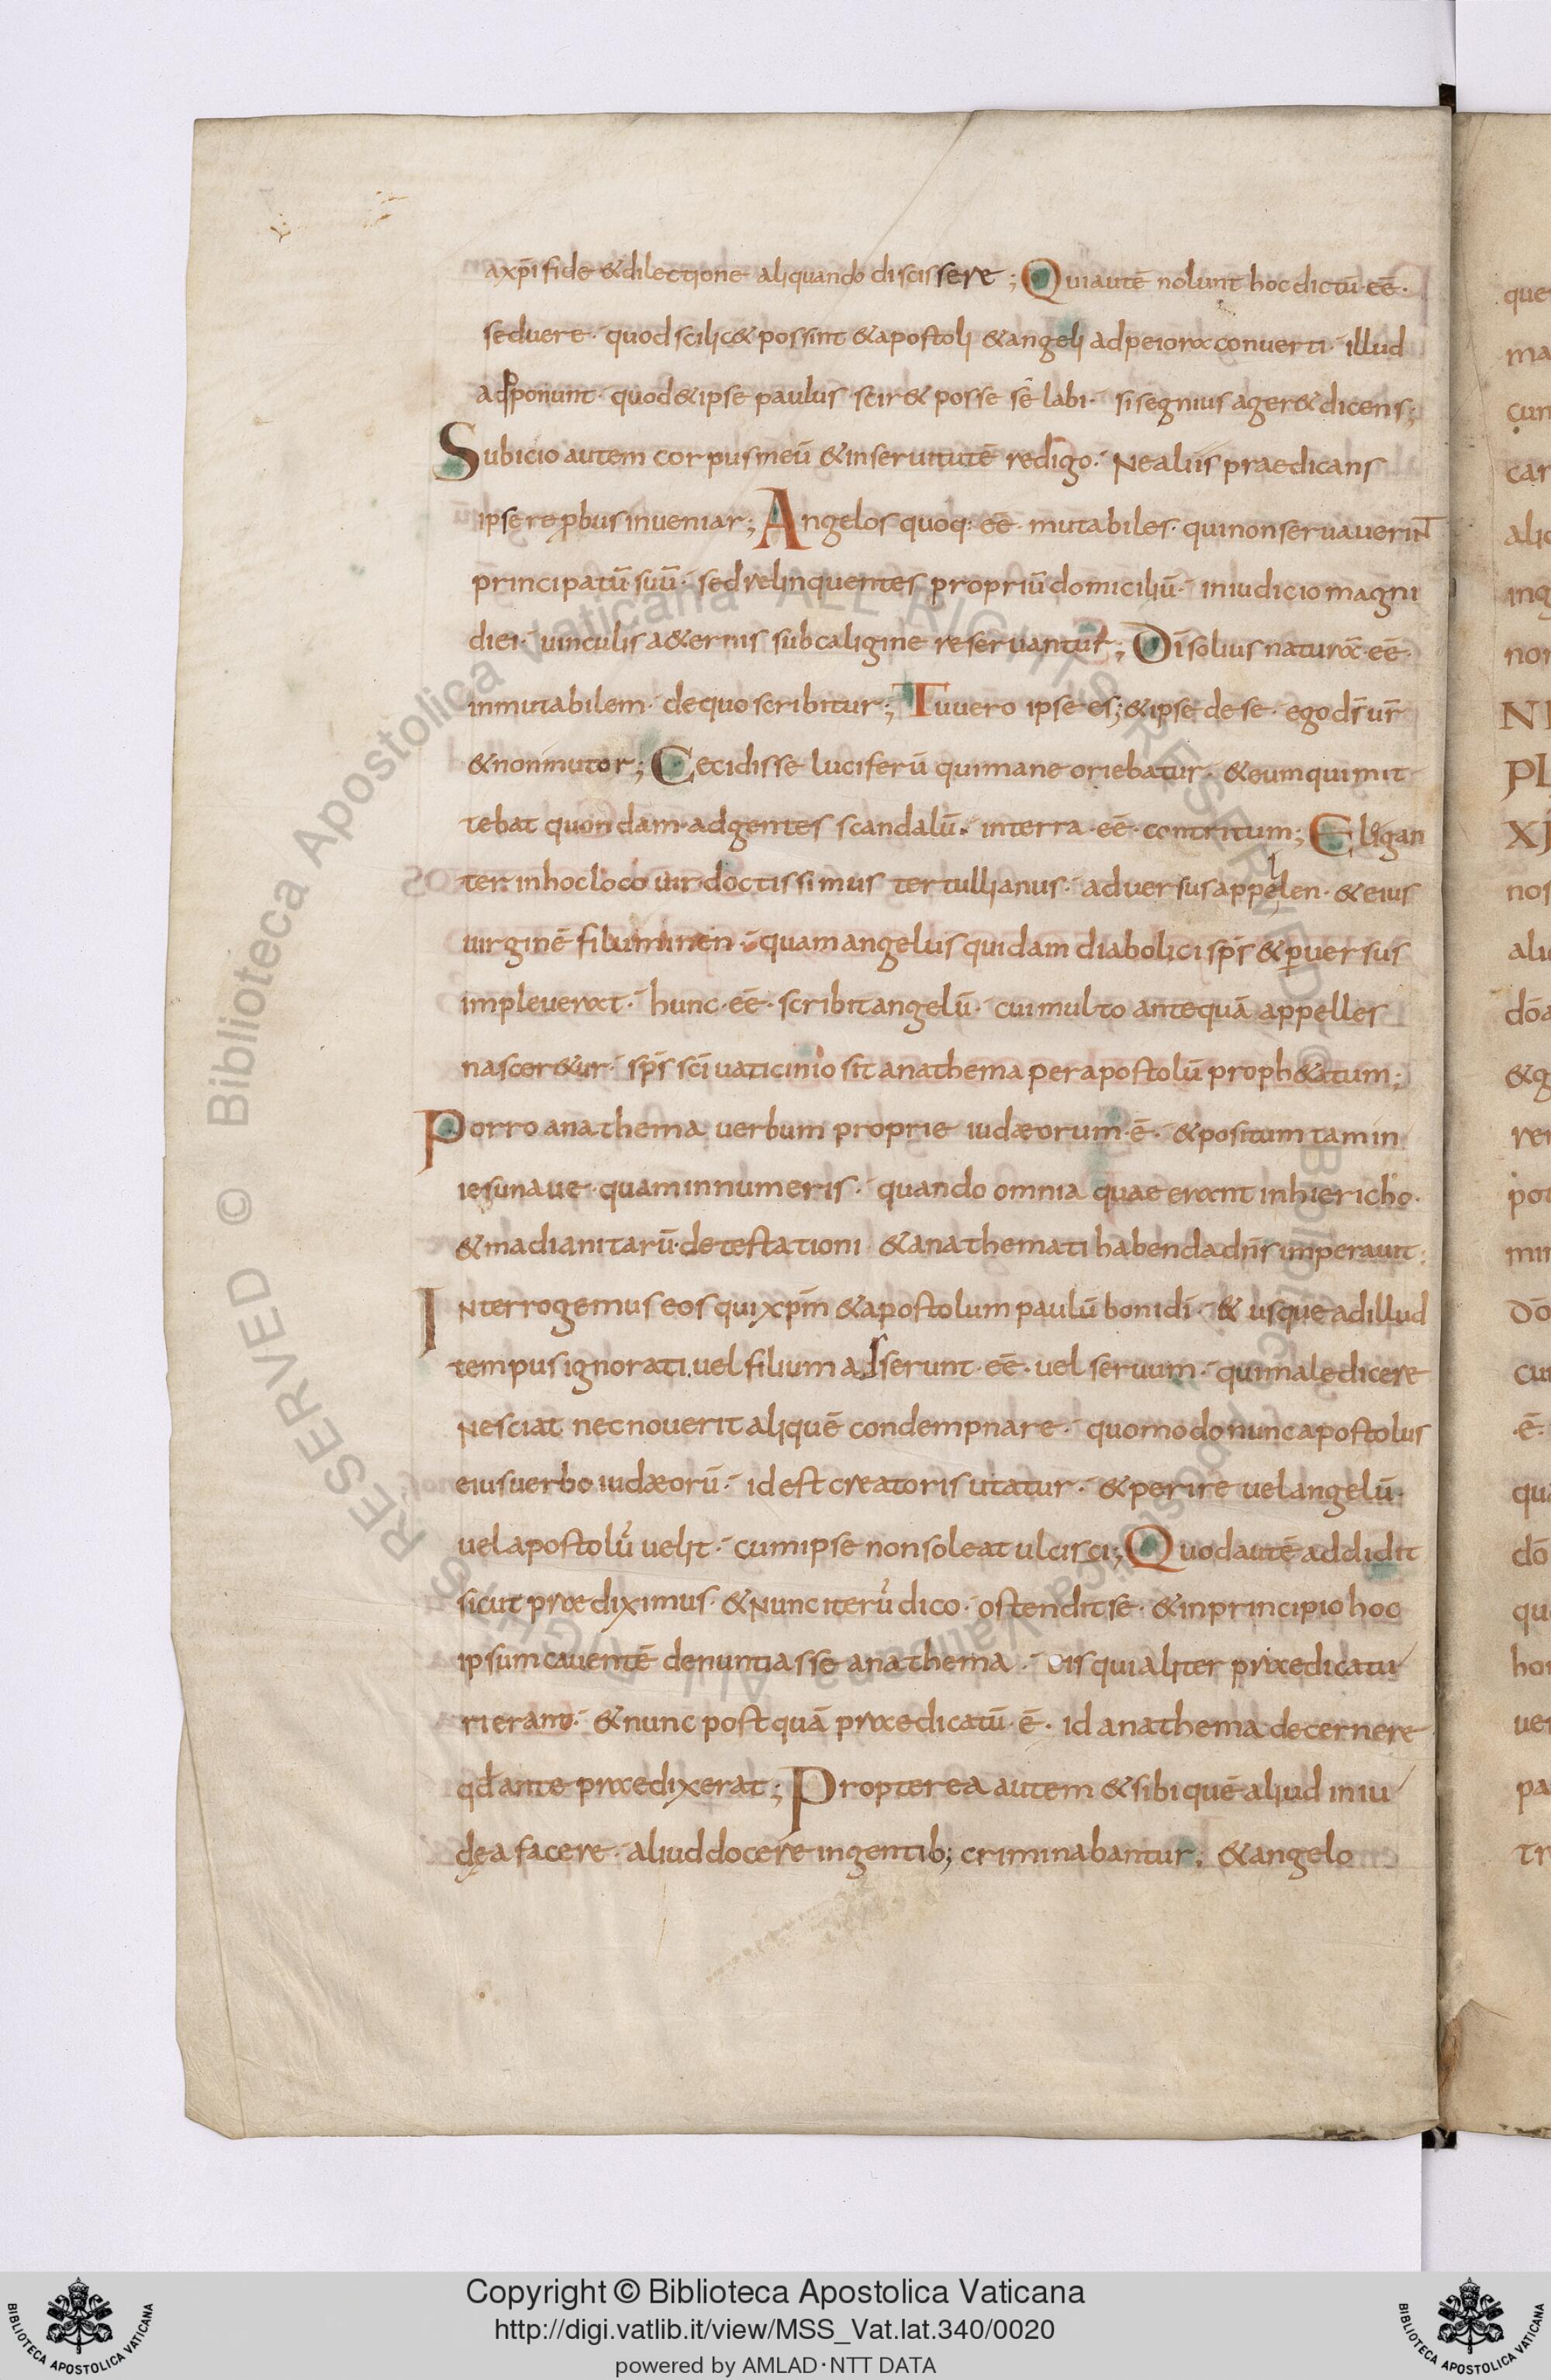 axp̄i fide & dilectione aliquando discissere; Qui autē nolunt hoc dictū eē·
seduere· quod scilic& possint & apostoli & angeli ad peiora conuerti· illud
adponunt· quod & ipse paulus scir& posse sē labi· si segnius ager& dicens;
Subicio autem corpus meū & in seruitutē redigo· Ne aliis praedicans
ipse reꝓbus inueniar; Angelos quoq: eē· mutabiles· qui non seruauerint
principatū suū· sed relinquentes propriū domiciliū· in iudicio magni
diei· uinculis a&ernis sub caligine reseruantur; Dī solius naturā eē·
inmutabilem· de quo scribitur; Tu uero ipse es; & ipse de se· ego dr̄ ur̄
& non mutor; Cecidisse luciferū qui mane oriebatur· & eum qui mit
tebat quondam ad gentes scandalū· in terra eē· contritum; Eligan
ter in hoc loco uir doctissimus tertullianus· aduersus appellen· & eius
uirginē filuminen· quam angelus quidam diabolici sp̄s & ꝑuersus
impleuerat· hunc eē· scribit angelū· cui multo antequā appelles
nascer&ur· sp̄s sc̄i uaticinio sit anathema per apostolū proph&atum;
Porro anathema uerbum proprie iudæorum ē· & positum tam in
iesu naue quam in numeris· quando omnia quae erant in hiericho·
& madianitarū· detestationi & anathemati habenda dn̄s imperauit;
Interrogemus eos qui xp̄m & apostolum paulū boni dī· & usque ad illud
tempus ignorati uel filium adserunt eē· uel seruum· qui maledicere
Nesciat nec nouerit aliquē condempnare· quomodo nunc apostolus
eius uerbo iudæorū· id est creatoris utatur· & perire uel angelū·
uel apostolū uelit· cum ipse non soleat ulcisci; Quod autē addidit
sicut praediximus· & Nunc iterū dico· ostendit sē· & in principio hoc
ipsum cauentē denuntiasse anathema· is qui aliter praedicatu
ri erant· & nunc postquā praedicatū ē· id anathema decernere
qd̄ ante praedixerat; Propterea autem & sibi quē aliud in iu
dęa facere· aliud docere in gentib; criminabantur; & angelo
que
ma
cun
car
ing
non
PL
nos
&g
cui
·ē·
dō
que
hon
pa
tr
© Biblioteca Apostolica Vaticana ALL RIGHTS RESERVED
© Biblioteca Apostolica Vaticana ALL RIGHTS RESERVED
Copyright © Biblioteca Apostolica Vaticana
http://digi.vatlib.it/view/MSS_Vat.lat.340/0020
powered by AMLAD·NTT DATA
BIBLIOTECA APOSTOLICA VATICANA
BIBLIOTECA APOSTOLICA VATICANA